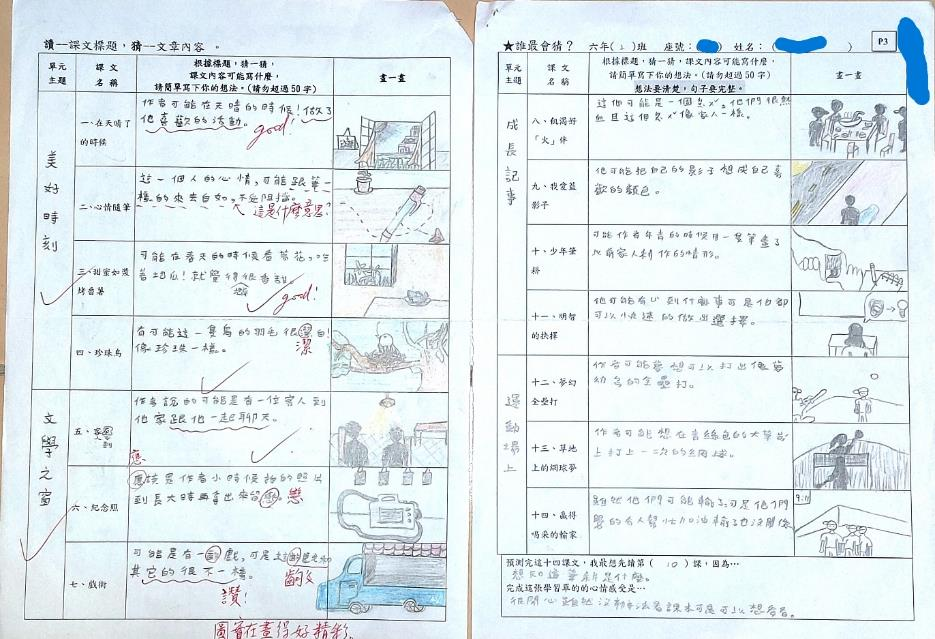 讀一課文標題，猜一文章內容。
單元主題
課文名稱
根據標題，猜一猜，
課文內容可能寫什麼，
請簡單寫下你的想法。(請勿超過50字)
畫一畫
美好時刻
一、在天晴了的時候
作者可能在天晴的時候！做了
他喜歡的活動。
good!
二、心情隨筆
這一個人的心情，可能跟筆一
樣的來去自如，不受阻擋。
這是什麼意思?
三、甜蜜如漿烤番薯
可能在春天的時候看菊花，吃
著地瓜！就覺得很香甜。
good!
四、珍珠鳥
有可能這一隻鳥的羽毛很潔白！
像珍珠一樣。
潔
文學之窗
五、客至
作者說的可能是有一位客人到
他家跟他一起聊天。
應
六、紀念照
應該是作者小時候拍的照片
到長大時再拿出來留戀。
戀
七、戲術
可能是有一齣戲，可是
其它的很不一樣。
齣
讚!
圖實在畫得好精彩。
★誰最會猜？ 六年( )班 座號： 姓名：( )
P3
單元主題
課文名稱
根據標題，猜一猜，課文內容可能寫什麼，
請簡單寫下你的想法。(請勿超過50字)
想法要清楚，句子要完整。
畫一畫
成長記事
八、飢渴好「火」伴
而且這個 像家人一樣。
九、我愛藍影子
他可能把自己的影子想成自己喜
歡的顏色。
十、少年筆耕
可能作者年青的時候用一隻筆畫了
以前家人 作的情形。
十一、明智的抉擇
可以 的做出選擇。
運動場上
十二、夢幻全壘打
作者可能夢想可以打出像夢
幻 的全壘打。
十三、草地上的網球夢
作者可能想在青綠色的大草地
上打上一 次的網球。
十四、贏得喝采的輸家
雖然他們可能輸了可是他們
的有人幫忙加油輸了也沒關係
9:11
預測完這十四課文，我最想先讀第( 10 )課，因為…
想知道這筆耕是什麼。
完成這張學習單的的心情感受是…
很開心雖然沒辦法看課本可是可以想看看。